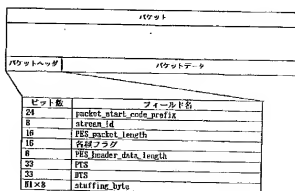 パケット
パケットヘッダ パケットデータ
ビット数 フィールド名
24 packet_start_code_prefix
8 stream_id
16 PES_packet_length
16 各種フラグ
8 PES_header_data_length
33 PTS
33 DTS
N1×8 stuffing_byte